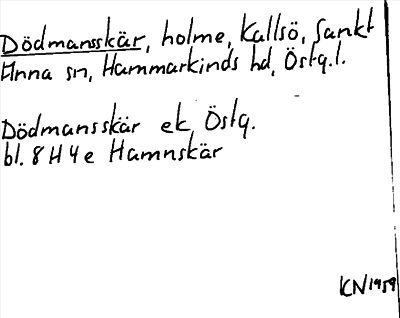 Dödmansskär, holme, Kallsö, Sankt
Anna sn, Hammarkinds hd, Östg.l.
Dödmansskär ek, Östg.
bl. 8 H 4 e Hamnskär
KN 1959